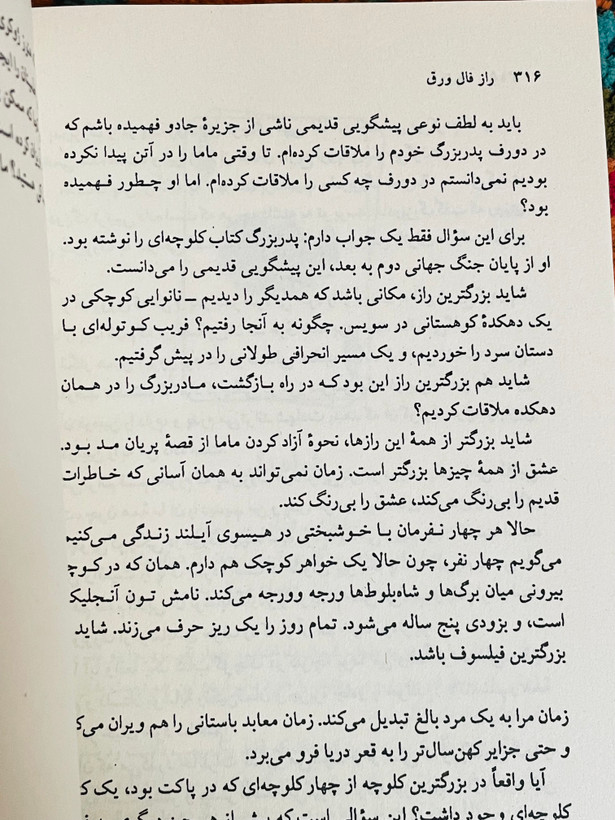 ۳۱۶ راز فال ورق
باید به لطف نوعی پیشگویی قدیمی ناشی از جزیرهٔ جادو فهمیده باشم که
در دورف پدربزرگ خودم را ملاقات کرده‌ام. تا وقتی ماما را در آتن پیدا نکرده
بودیم نمی‌دانستم در دورف چه کسی را ملاقات کرده‌ام. اما او چطور فهمیده
بود؟
برای این سؤال فقط یک جواب دارم: پدربزرگ کتاب کلوچه‌ای را نوشته بود.
او از پایان جنگ جهانی دوم به بعد، این پیشگویی قدیمی را می‌دانست.
شاید بزرگترین راز، مکانی باشد که همدیگر را دیدیم ــ نانوایی کوچکی در
یک دهکدهٔ کوهستانی در سویس. چگونه به آنجا رفتیم؟ فریب کوتوله‌ای با
دستان سرد را خوردیم، و یک مسیر انحرافی طولانی را در پیش گرفتیم.
شاید هم بزرگترین راز این بود که در راه بازگشت، مادربزرگ را در همان
دهکده ملاقات کردیم؟
شاید بزرگتر از همهٔ این رازها، نحوهٔ آزاد کردن ماما از قصهٔ پریان مد بود.
عشق از همهٔ چیزها بزرگتر است. زمان نمی‌تواند به همان آسانی که خاطرات
قدیم را بی‌رنگ می‌کند، عشق را بی‌رنگ کند.
حالا هر چهار نفرمان با خوشبختی در هیسوی آیلند زندگی می‌کنیم
می‌گویم چهار نفر، چون حالا یک خواهر کوچک هم دارم. همان که در کوچ
بیرونی میان برگ‌ها و شاه‌بلوط‌ها ورجه وورجه می‌کند. نامش تون آنجلیک
است، و بزودی پنج ساله می‌شود. تمام روز را یک ریز حرف می‌زند. شاید
بزرگترین فیلسوف باشد.
زمان مرا به یک مرد بالغ تبدیل می‌کند. زمان معابد باستانی را هم ویران می‌ک
و حتی جزایر کهن‌سال‌تر را به قعر دریا فرو می‌برد.
آیا واقعاً در بزرگترین کلوچه از چهار کلوچه‌ای که در پاکت بود، یک ک
کلوچه‌ای وجود داشت؟ این سؤالی است که